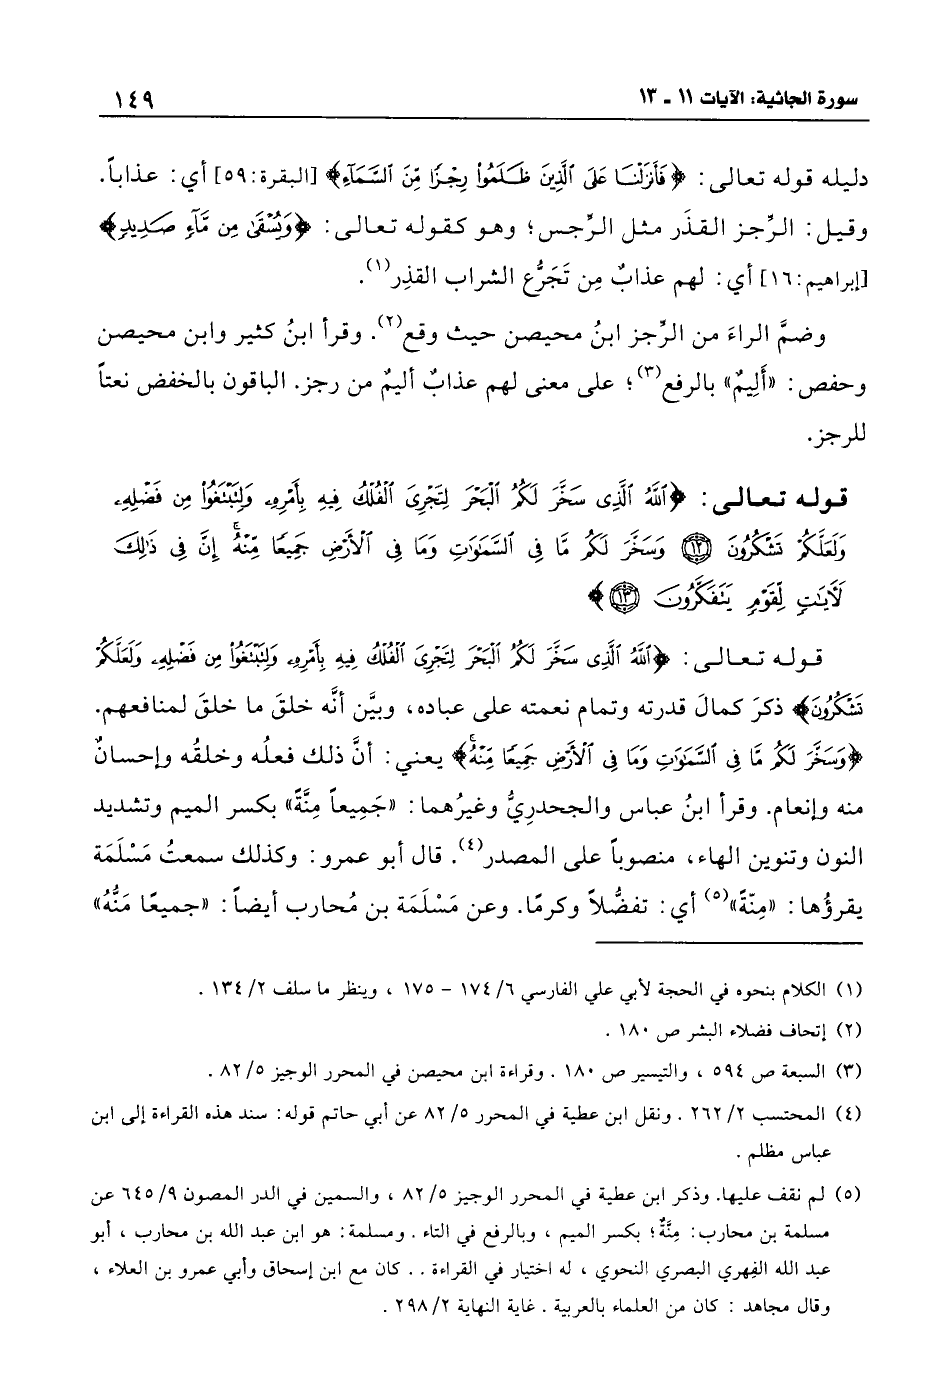 سورة الجاثية: الآيات ١١ - ١٣
١٤٩
دليله قوله تعالى: ﴿فَأَنزَلْنَا عَلَى ٱلَّذِينَ ظَلَمُوا۟ رِجْزًا مِّنَ ٱلسَّمَآءِ﴾ [البقرة:٥٩] أي: عذاباً.
وقيل: الرِّجز القذَر مثل الرِّجس؛ وهو كقوله تعالى: ﴿وَيُسْقَىٰ مِن مَّآءٍ صَدِيدٍ﴾
[إبراهيم:١٦] أي: لهم عذابٌ مِن تَجَرُّع الشراب القذِر(١).
وضمَّ الراءَ من الرِّجز ابنُ محيصن حيث وقع(٢). وقرأ ابنُ كثير وابن محيصن
وحفص: «أَلِيمٌ» بالرفع(٣)؛ على معنى لهم عذابٌ أليمٌ من رجز. الباقون بالخفض نعتاً
للرجز.
قوله تعالى: ﴿ٱللَّهُ ٱلَّذِى سَخَّرَ لَكُمُ ٱلْبَحْرَ لِتَجْرِىَ ٱلْفُلْكُ فِيهِ بِأَمْرِهِۦ وَلِتَبْتَغُوا۟ مِن فَضْلِهِۦ
وَلَعَلَّكُمْ تَشْكُرُونَ ١٢ وَسَخَّرَ لَكُم مَّا فِى ٱلسَّمَٰوَٰتِ وَمَا فِى ٱلْأَرْضِ جَمِيعًا مِّنْهُ ۚ إِنَّ فِى ذَٰلِكَ
لَآيَٰتٍ لِّقَوْمٍ يَتَفَكَّرُونَ ١٣﴾
قوله تعالى: ﴿ٱللَّهُ ٱلَّذِى سَخَّرَ لَكُمُ ٱلْبَحْرَ لِتَجْرِىَ ٱلْفُلْكُ فِيهِ بِأَمْرِهِۦ وَلِتَبْتَغُوا۟ مِن فَضْلِهِۦ وَلَعَلَّكُمْ
تَشْكُرُونَ﴾ ذكرَ كمالَ قدرته وتمام نعمته على عباده، وبيَّن أنَّه خلقَ ما خلقَ لمنافعهم.
﴿وَسَخَّرَ لَكُم مَّا فِى ٱلسَّمَٰوَٰتِ وَمَا فِى ٱلْأَرْضِ جَمِيعًا مِّنْهُ ۚ﴾ يعني: أنَّ ذلك فعلُه وخلقُه وإحسانٌ
منه وإنعام. وقرأ ابنُ عباس والجحدريُّ وغيرُهما: «جَمِيعاً مِنَّةً» بكسر الميم وتشديد
النون وتنوين الهاء، منصوباً على المصدر(٤). قال أبو عمرو: وكذلك سمعتُ مَسْلَمَة
يقرؤُها: «مِنّةً»(٥) أي: تفضُّلاً وكرمًا. وعن مَسْلَمَة بن مُحارب أيضاً: «جميعًا مَنُّهُ»
(١) الكلام بنحوه في الحجة لأبي علي الفارسي ٦/ ١٧٤ - ١٧٥ ، وينظر ما سلف ٢/ ١٣٤ .
(٢) إتحاف فضلاء البشر ص ١٨٠ .
(٣) السبعة ص ٥٩٤ ، والتيسير ص ١٨٠ . وقراءة ابن محيصن في المحرر الوجيز ٥/ ٨٢ .
(٤) المحتسب ٢/ ٢٦٢ . ونقل ابن عطية في المحرر ٥/ ٨٢ عن أبي حاتم قوله: سند هذه القراءة إلى ابن
عباس مظلم .
(٥) لم نقف عليها. وذكر ابن عطية في المحرر الوجيز ٥/ ٨٢ ، والسمين في الدر المصون ٩/ ٦٤٥ عن
مسلمة بن محارب: مِنَّةٌ؛ بكسر الميم ، وبالرفع في التاء . ومسلمة: هو ابن عبد الله بن محارب ، أبو
عبد الله الفِهري البصري النحوي ، له اختيار في القراءة .. كان مع ابن إسحاق وأبي عمرو بن العلاء ،
وقال مجاهد : كان من العلماء بالعربية . غاية النهاية ٢/ ٢٩٨ .